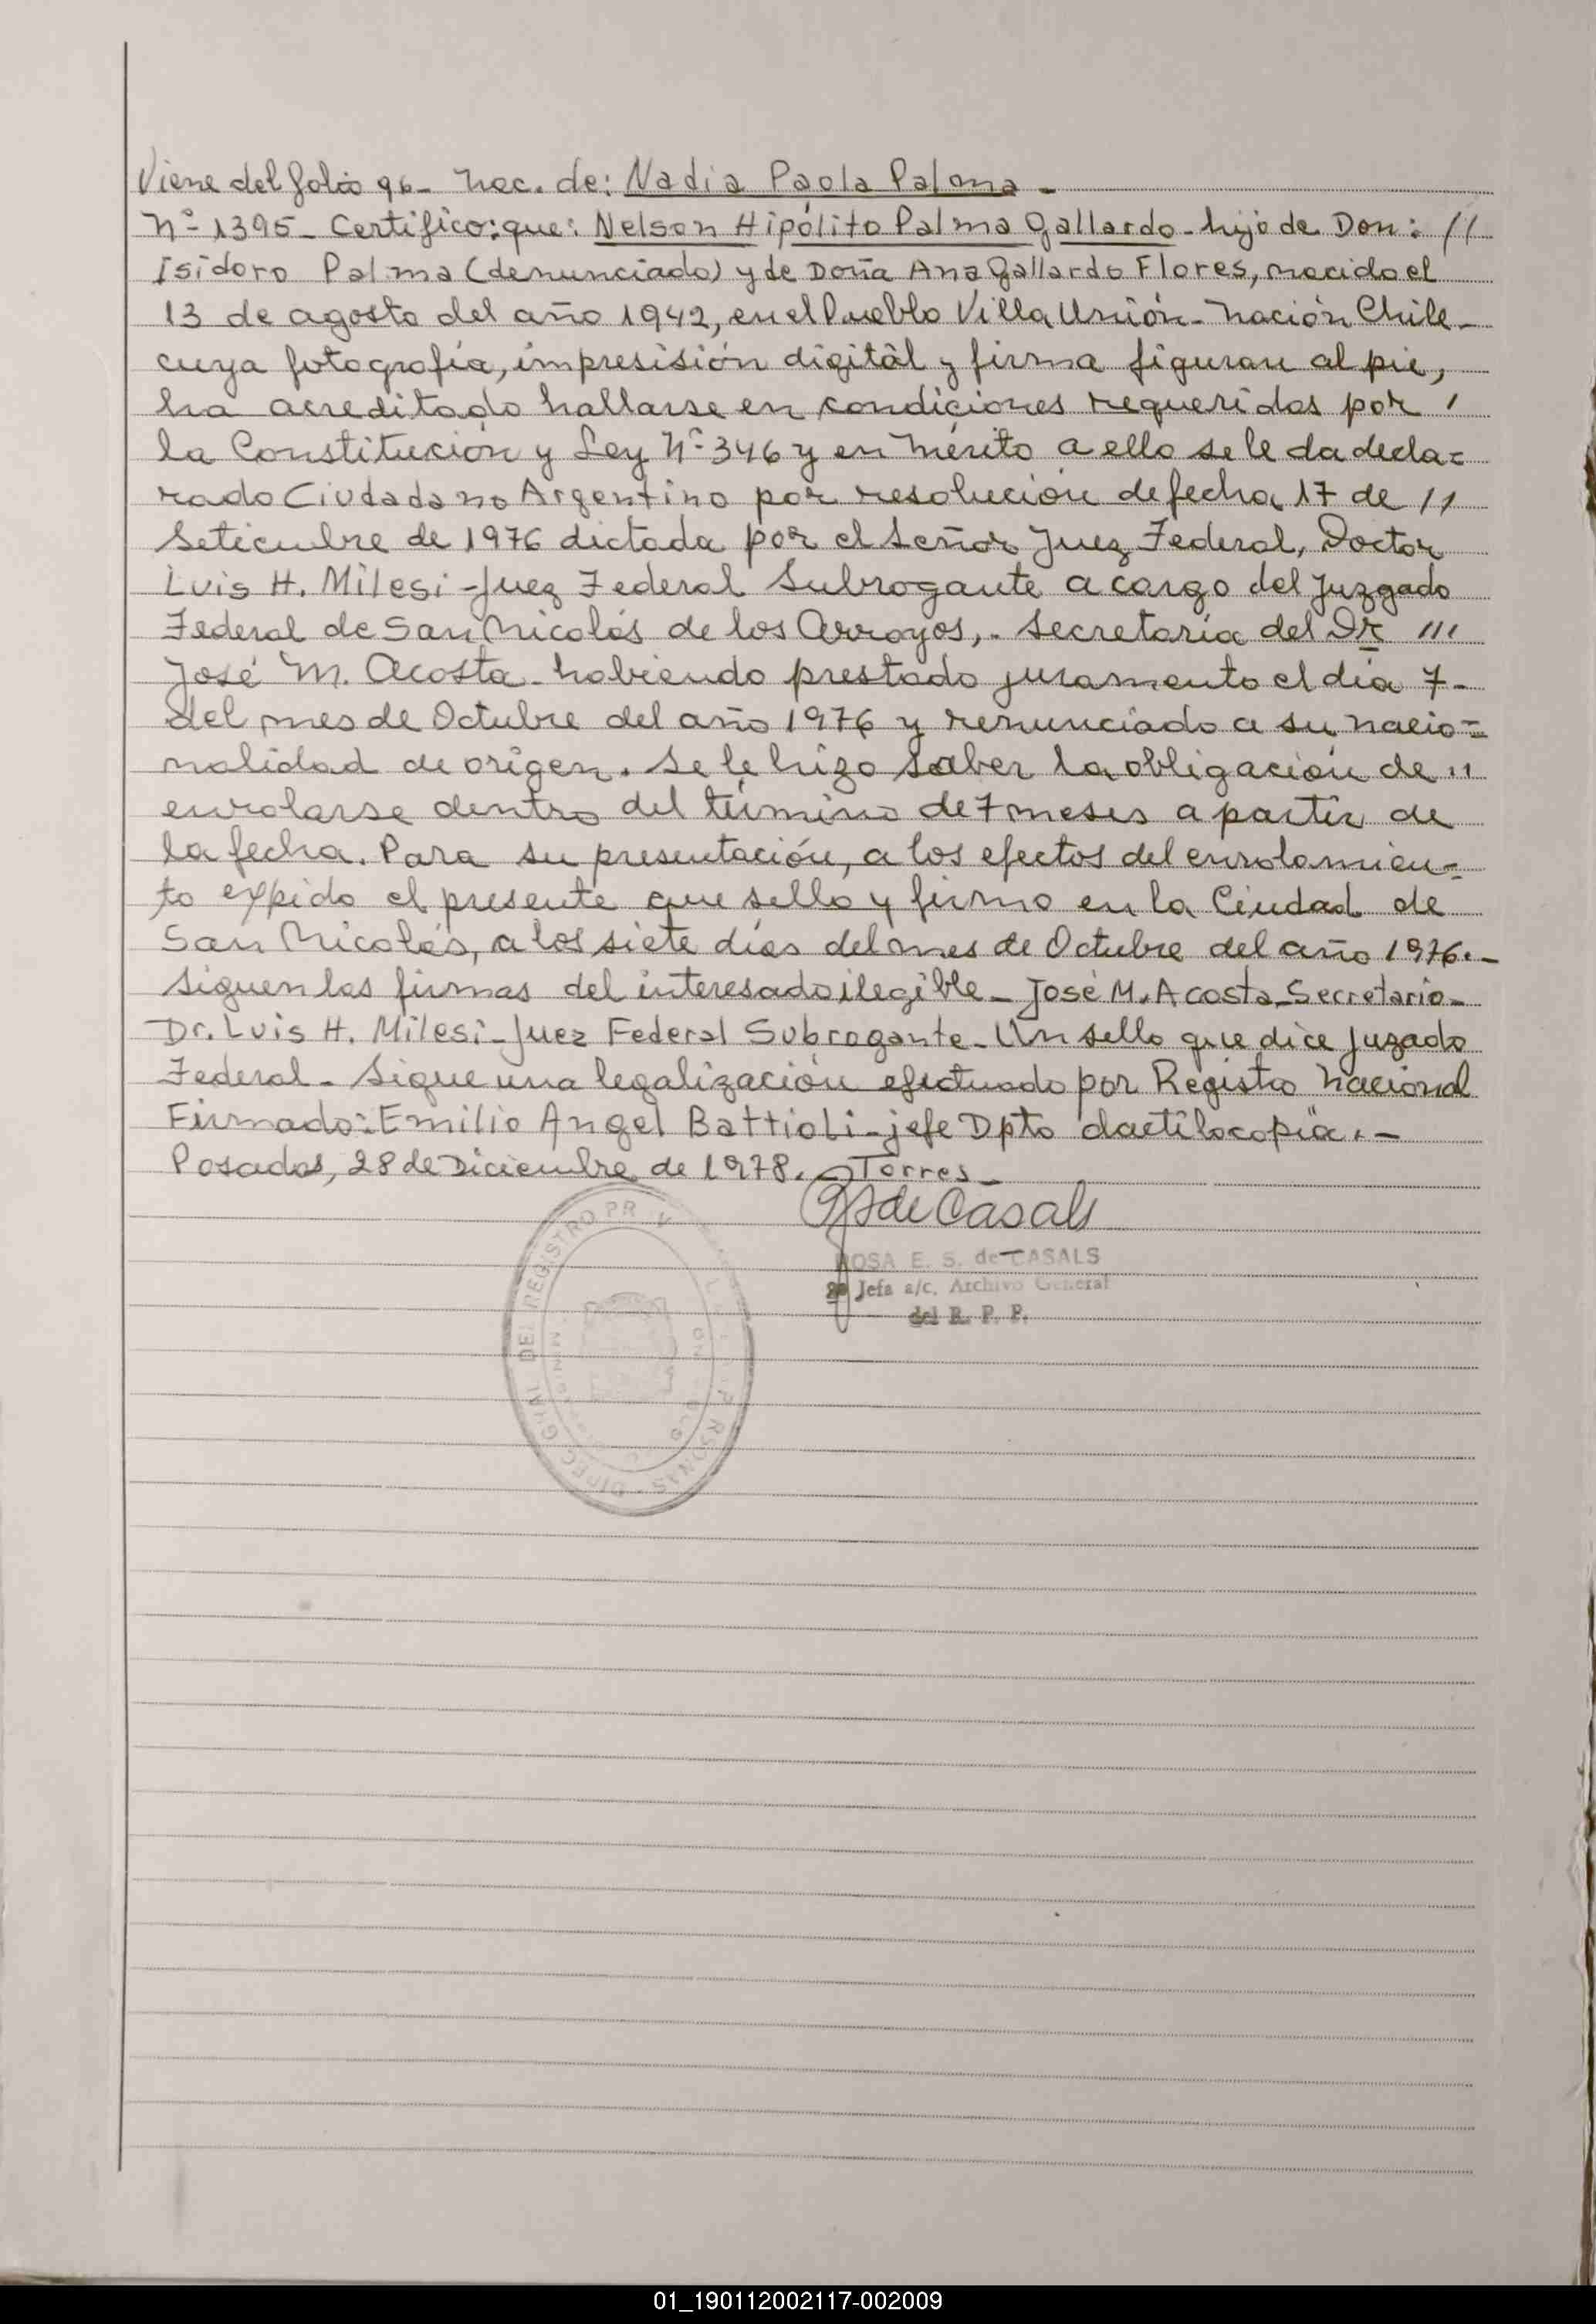 Viene del folio 96- Nac. de: Nadia Paola Palma -
Nº 1395- Certifico: que: Nelson Hipólito Palma Gallardo - hijo de Don: //
Isidoro Palma (denunciado) y de Doña Ana Gallardo Flores, nacido el
13 de agosto del año 1942, en el Pueblo Villa Unión - Nación Chile -
cuya fotografía, impresisión digitál y firma figuran al pie,
ha acreditado hallarse en condiciones requeridas por /
la Constitución y Ley Nº 346 y en mérito a ello se le da decla=
rado Ciudadano Argentino por resolución de fecha 17 de //
Setiembre de 1976 dictada por el Señor Juez Federal, Doctor
Luis H. Milesi - Juez Federal Subrogante a cargo del Juzgado
Federal de San Nicolás de los Arroyos,- Secretaría del Dr ///
José M. Acosta - habiendo prestado juramento el día 7-
del mes de Octubre del año 1976 y renunciado a su nacio=
nalidad de origen. Se le hizo saber la obligación de //
enrolarse dentro del término de 7 meses a partir de
la fecha. Para su presentación, a los efectos del enrolamien=
to expido el presente que sello y firmo en la Ciudad de
San Nicolás, a los siete días del mes de Octubre del año 1976.-
Siguen las firmas del interesado ilegible - José M. Acosta - Secretario -
Dr. Luis H. Milesi - Juez Federal Subrogante - Un sello que dice Juzado
Federal - Sigue una legalización efectuado por Registro Nacional
Firmado: Emilio Angel Battioli - jefe Dpto dactilocopía.-
Posadas, 28 de Diciembre de 1978. - Torres -
de Casals
ROSA E. S. de CASALS
Jefa a/c. Archivo General
del R. P. P.
01_190112002117-002009